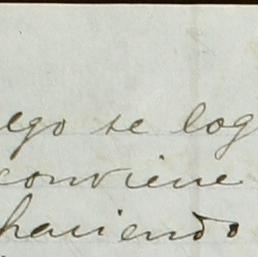 ego se log
conviene
haciendo